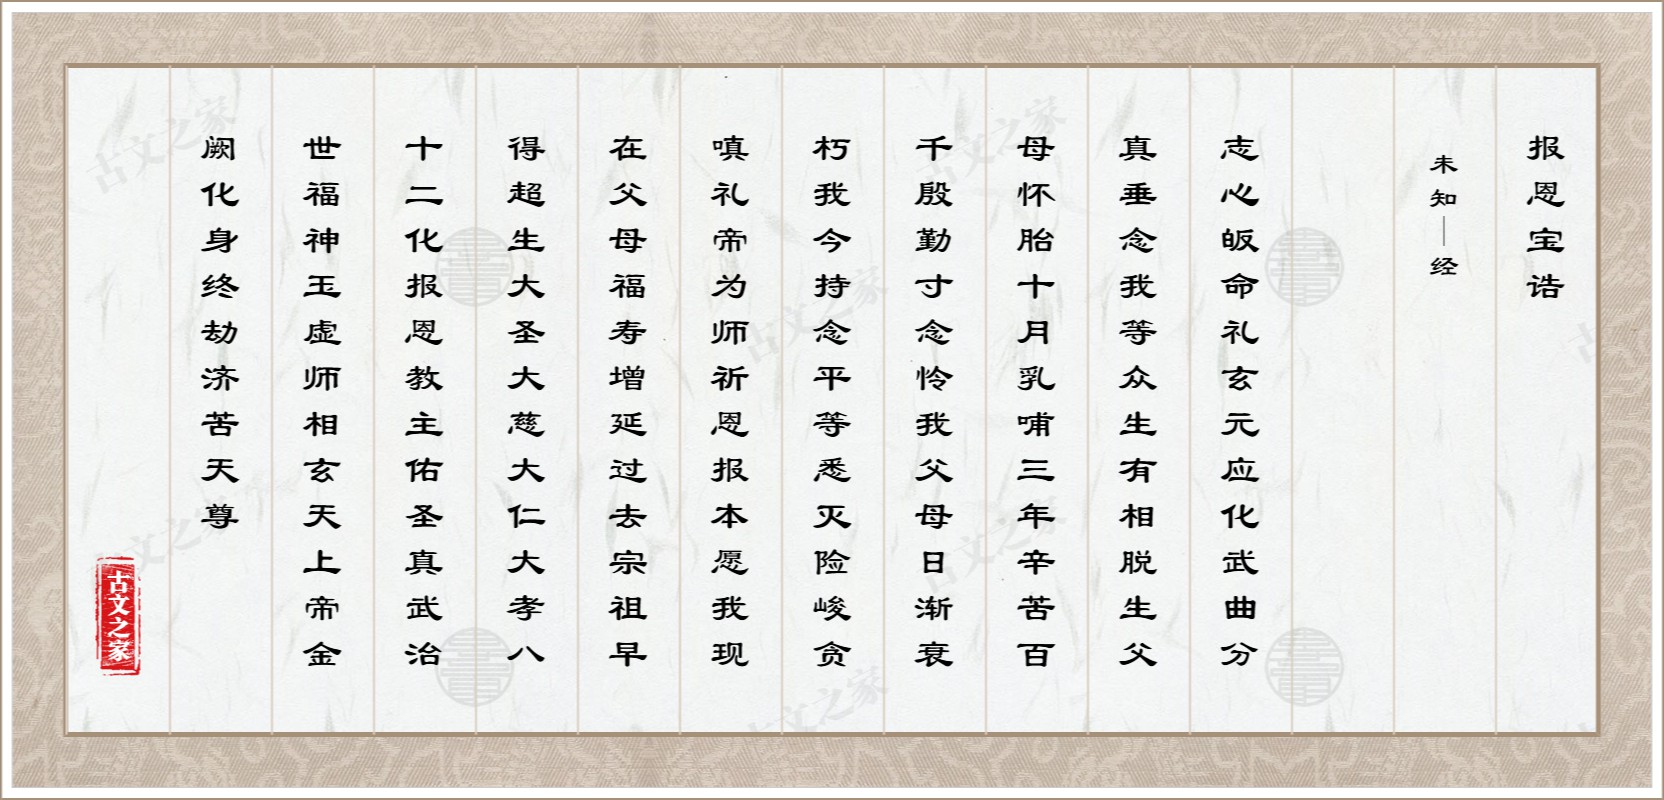 报恩宝诰
未知—经
志心皈命礼玄元应化武曲分
真垂念我等众生有相脱生父
母怀胎十月乳哺三年辛苦百
千殷勤寸念怜我父母日渐衰
朽我今持念平等悉灭险峻贪
嗔礼帝为师祈恩报本愿我现
在父母福寿增延过去宗祖早
得超生大圣大慈大仁大孝八
十二化报恩教主佑圣真武治
世福神玉虚师相玄天上帝金
阙化身终劫济苦天尊
古文之家